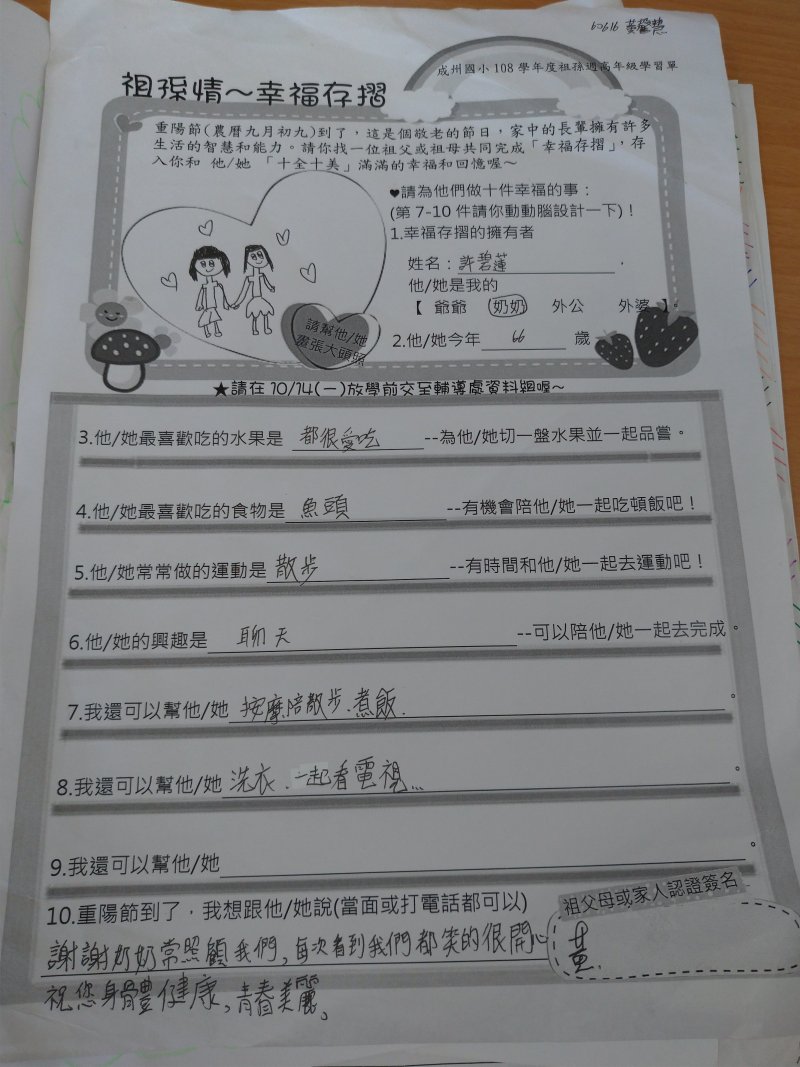 60616 黃馨慧
成州國小108學年度祖孫週高年級學習單
祖孫情～幸福存摺
重陽節(農曆九月初九)到了，這是個敬老的節日，家中的長輩擁有許多
生活的智慧和能力。請你找一位祖父或祖母共同完成「幸福存摺」，存
入你和 他/她 「十全十美」滿滿的幸福和回憶喔～
♥請為他們做十件幸福的事：
(第 7-10 件請你動動腦設計一下)！
1.幸福存摺的擁有者
姓名：許碧蓮
他/她是我的
【 爺爺 奶奶 外公 外婆 】。
2.他/她今年 66 歲
請幫他/她
畫張大頭照
★請在 10/14(一)放學前交至輔導處資料組喔～
3.他/她最喜歡吃的水果是 都很愛吃 --為他/她切一盤水果並一起品嘗。
4.他/她最喜歡吃的食物是 魚頭 --有機會陪他/她一起吃頓飯吧！
5.他/她常常做的運動是 散步 --有時間和他/她一起去運動吧！
6.他/她的興趣是 聊天 --可以陪他/她一起去完成。
7.我還可以幫他/她 按摩.陪散步.煮飯. 。
8.我還可以幫他/她 洗衣.一起看電視... 。
9.我還可以幫他/她 。
10.重陽節到了，我想跟他/她說(當面或打電話都可以)
謝謝奶奶常照顧我們,每次看到我們都笑的很開心
祝您身體健康,青春美麗,
祖父母或家人認證簽名
黃.